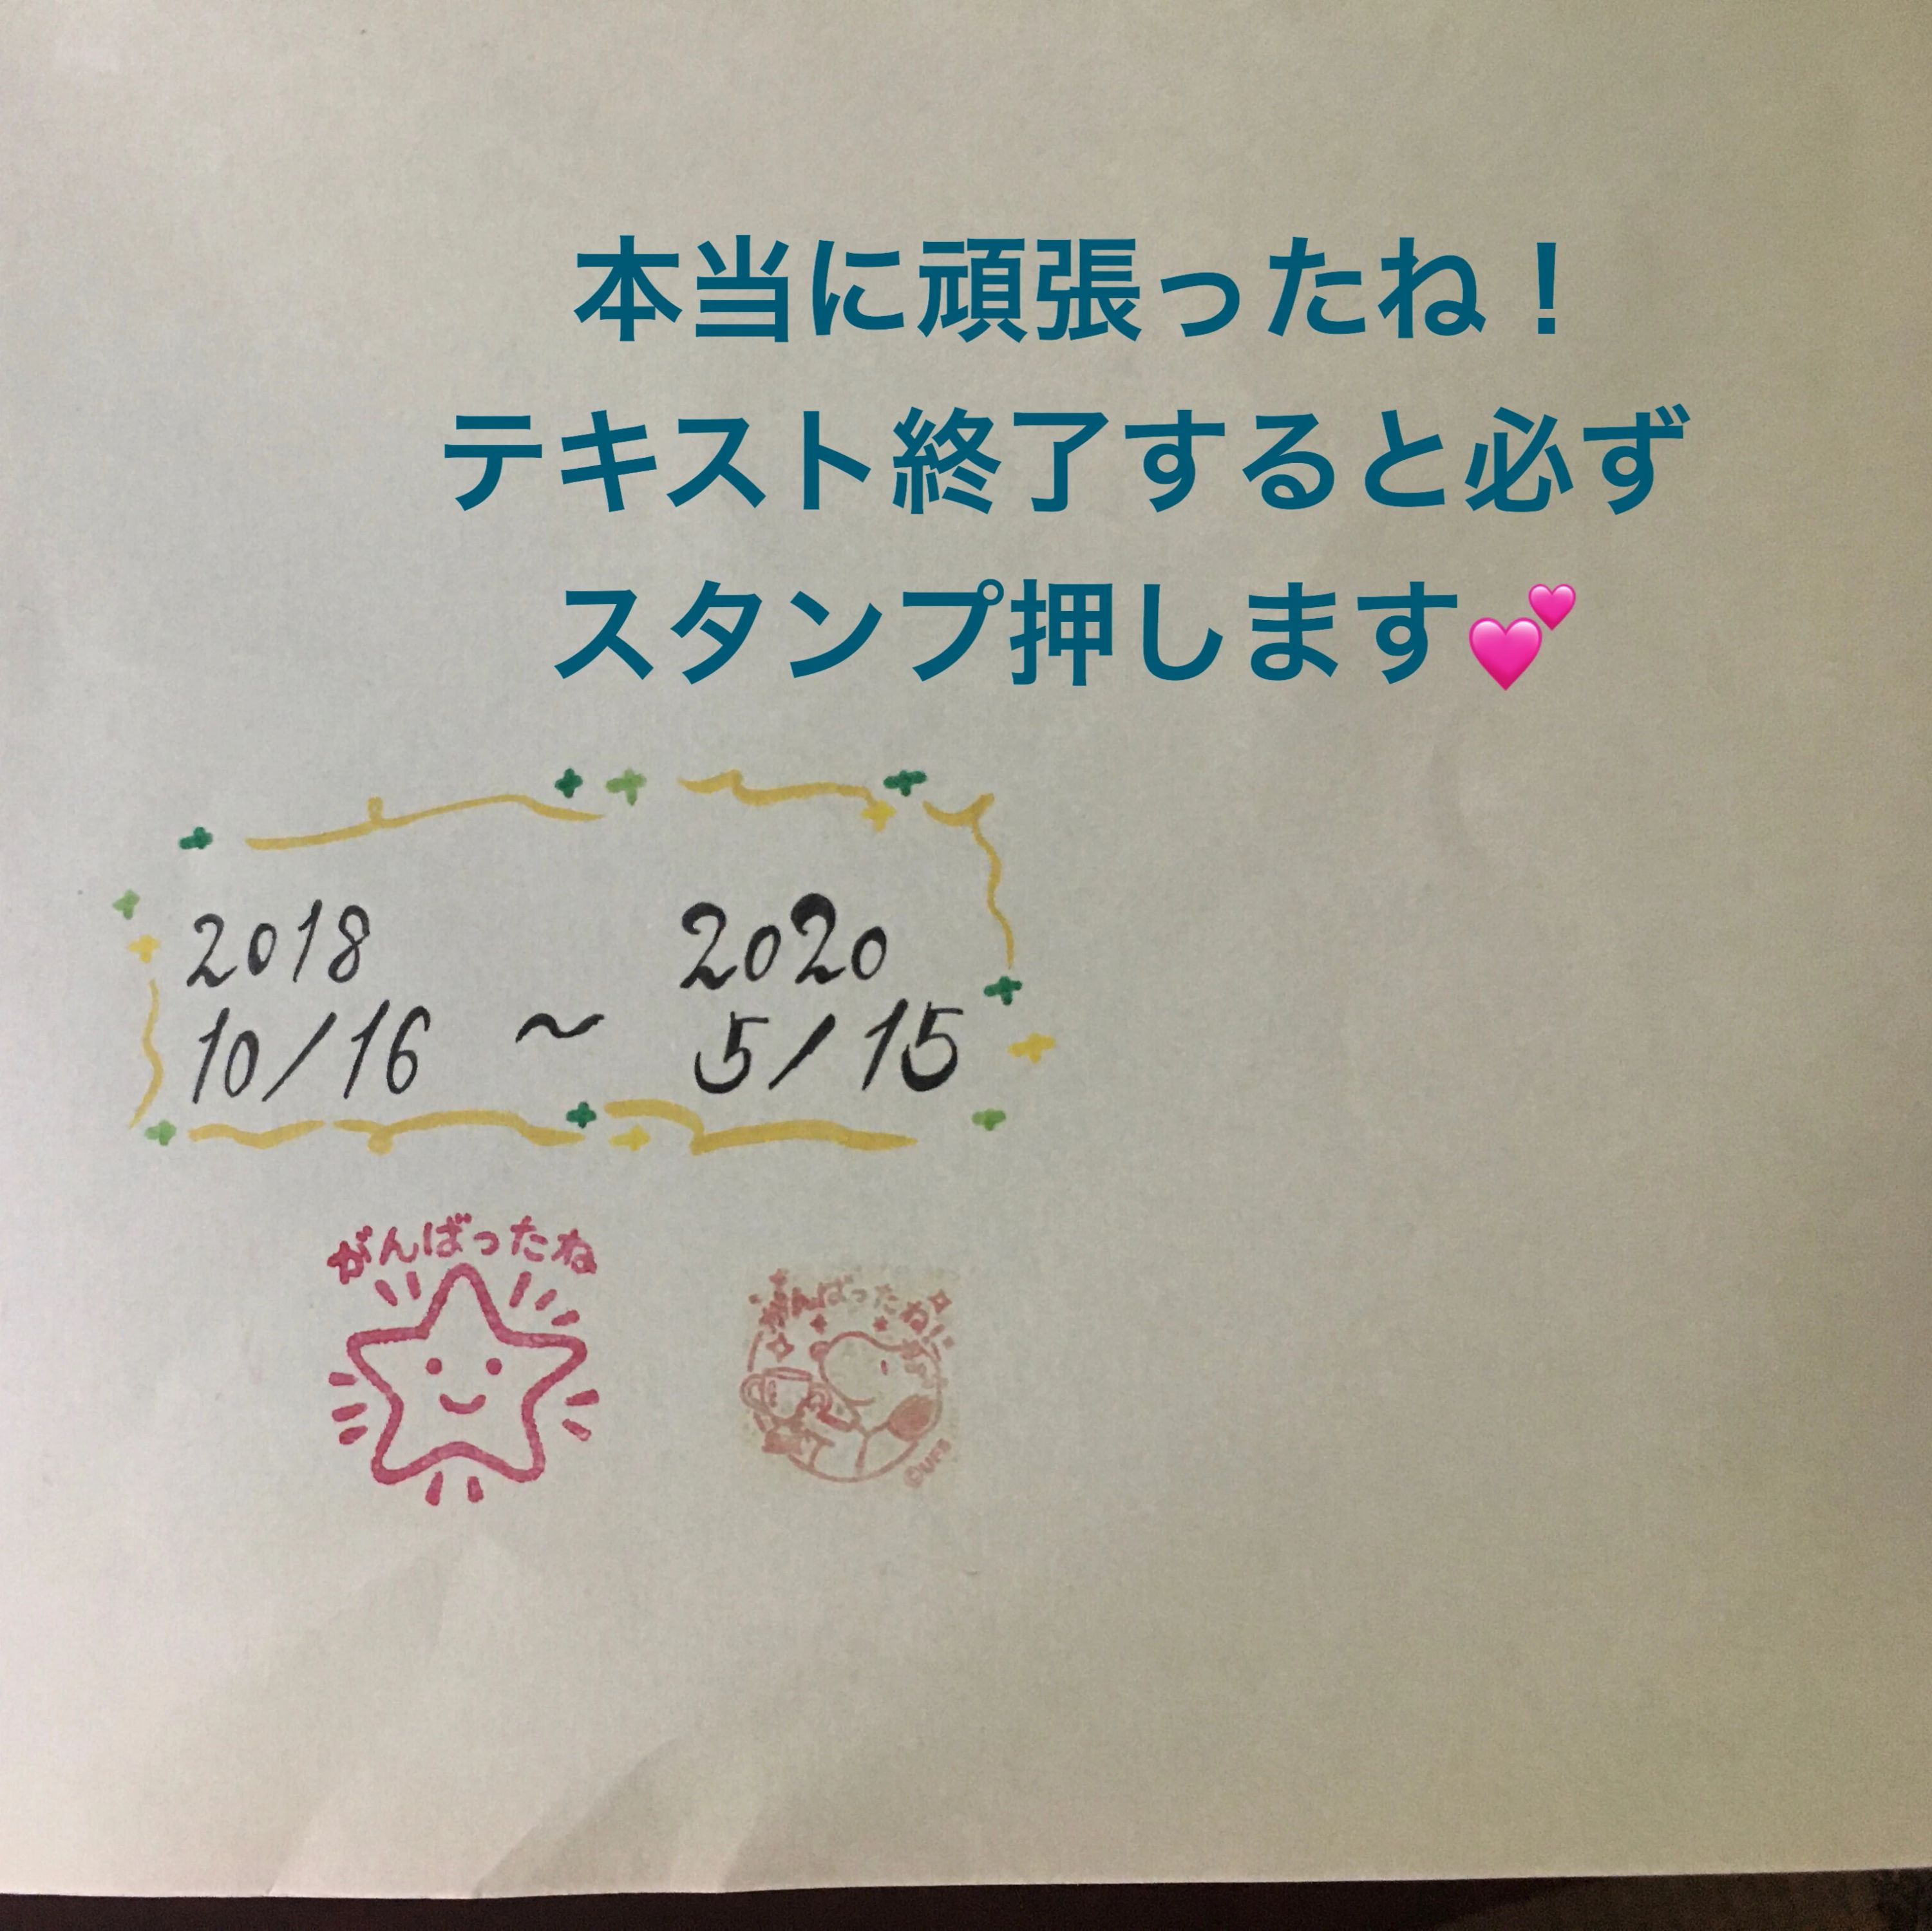 本当に頑張ったね！
テキスト終了すると必ず
スタンプ押します💕
2018 2020
10/16 ~ 5/15
がんばったね
がんばったね!
©UFS